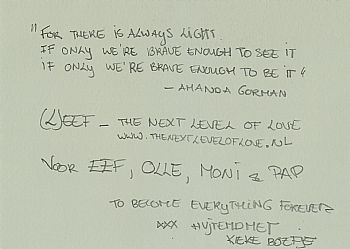 "FOR THERE IS ALWAYS LIGHT.
IF ONLY WE'RE BRAVE ENOUGH TO SEE IT
IF ONLY WE'RE BRAVE ENOUGH TO BE IT"
- AMANDA GORMAN
(L)EEF - THE NEXT LEVEL OF LOVE
WWW.THENEXTLEVELOFLOVE.NL
VOOR EEF, OLLE, MONI & PAP
TO BECOME EVERYTHING FOREVER
XXX
KIEKE